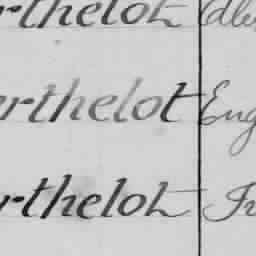 rthelot Edle
erthelot Eug
rthelot Fr